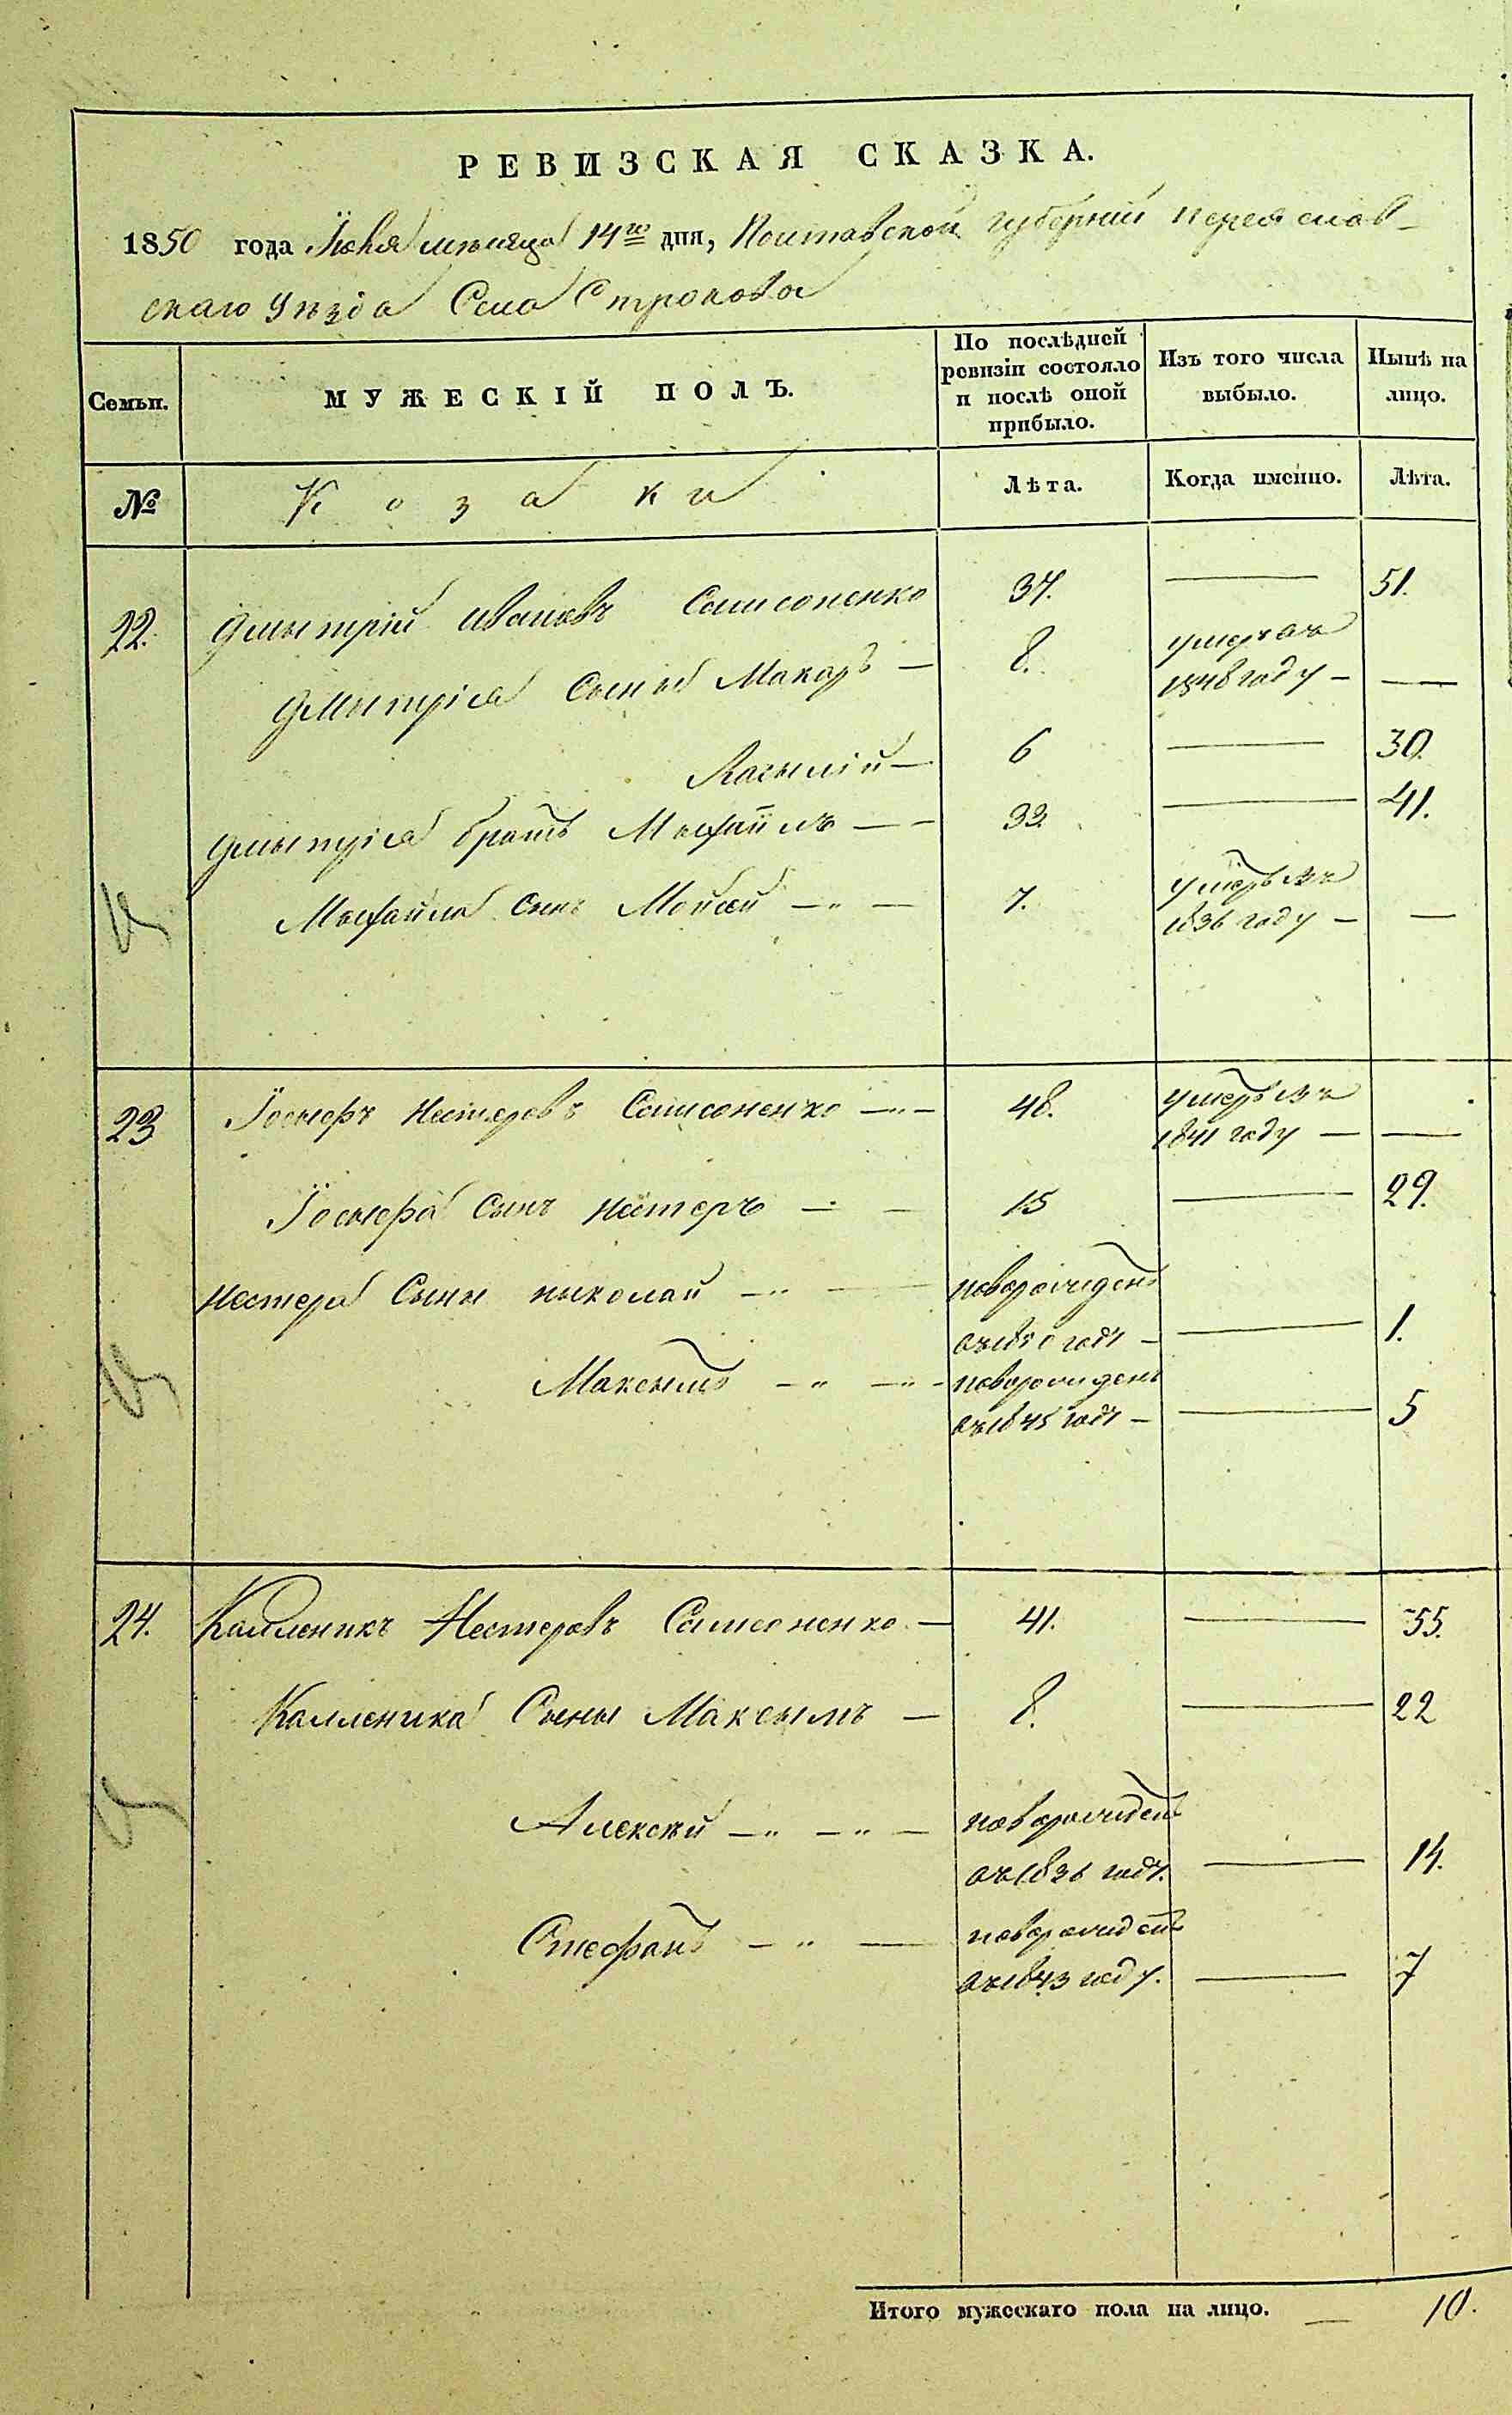 РЕВИЗСКАЯ СКАЗКА.
1850 года мѣсяца 14го дня, Полтавской губерніи Переяслав-
скаго уѣзда Села Строкова
Семьи.
МУЖЕСКІЙ ПОЛЪ.
По послѣдней ревизіи состояло и послѣ оной прибыло.
Изъ того числа выбыло.
Нынѣ на лицо.
№
Козаки
Лѣта.
Когда именно.
Лѣта.
22. Дмытрій Ивановъ Самсоненко 37. — 51.
Дмытріа Сыны Макаръ — 8. умеръ въ
1848 году — —
Васылій — 6 — 30.
Дмытріа братъ Мыхайлъ — — 33. — 41.
Мыхайла Сынъ Мойсей — " — 7. умеръ въ
1836 году — —
23 Іосыфъ Нестеровъ Самсоненко — " — 48. умеръ въ
1841 году — —
Іосыфа Сынъ Нестеръ — — 15 — 29.
Нестера Сыны Николай — " — новорожденъ
въ 1850 году — — 1.
Максымъ — " — " — новорожденъ
въ 1845 году — — 5
24. Калленикъ Нестеровъ Самсоненко — 41. — 55.
Калленика Сыны Максымъ — 8. — 22
Алексѣй — " — " — новорожденъ
въ 1836 году. — 14.
Стефанъ — " — новорожденъ
въ 1843 году. — 7
Итого мужескаго пола на лицо. — 10.